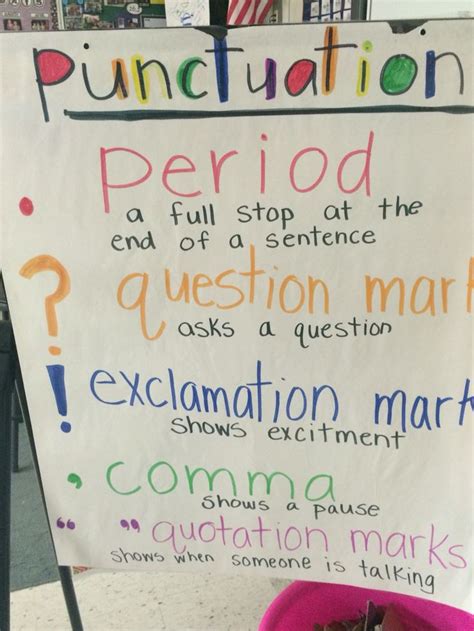 punctuation
. period
a full stop at the
end of a sentence
? question mark
asks a question
! exclamation mark
shows excitment
, comma
shows a pause
“ ” quotation marks
shows when someone is talking